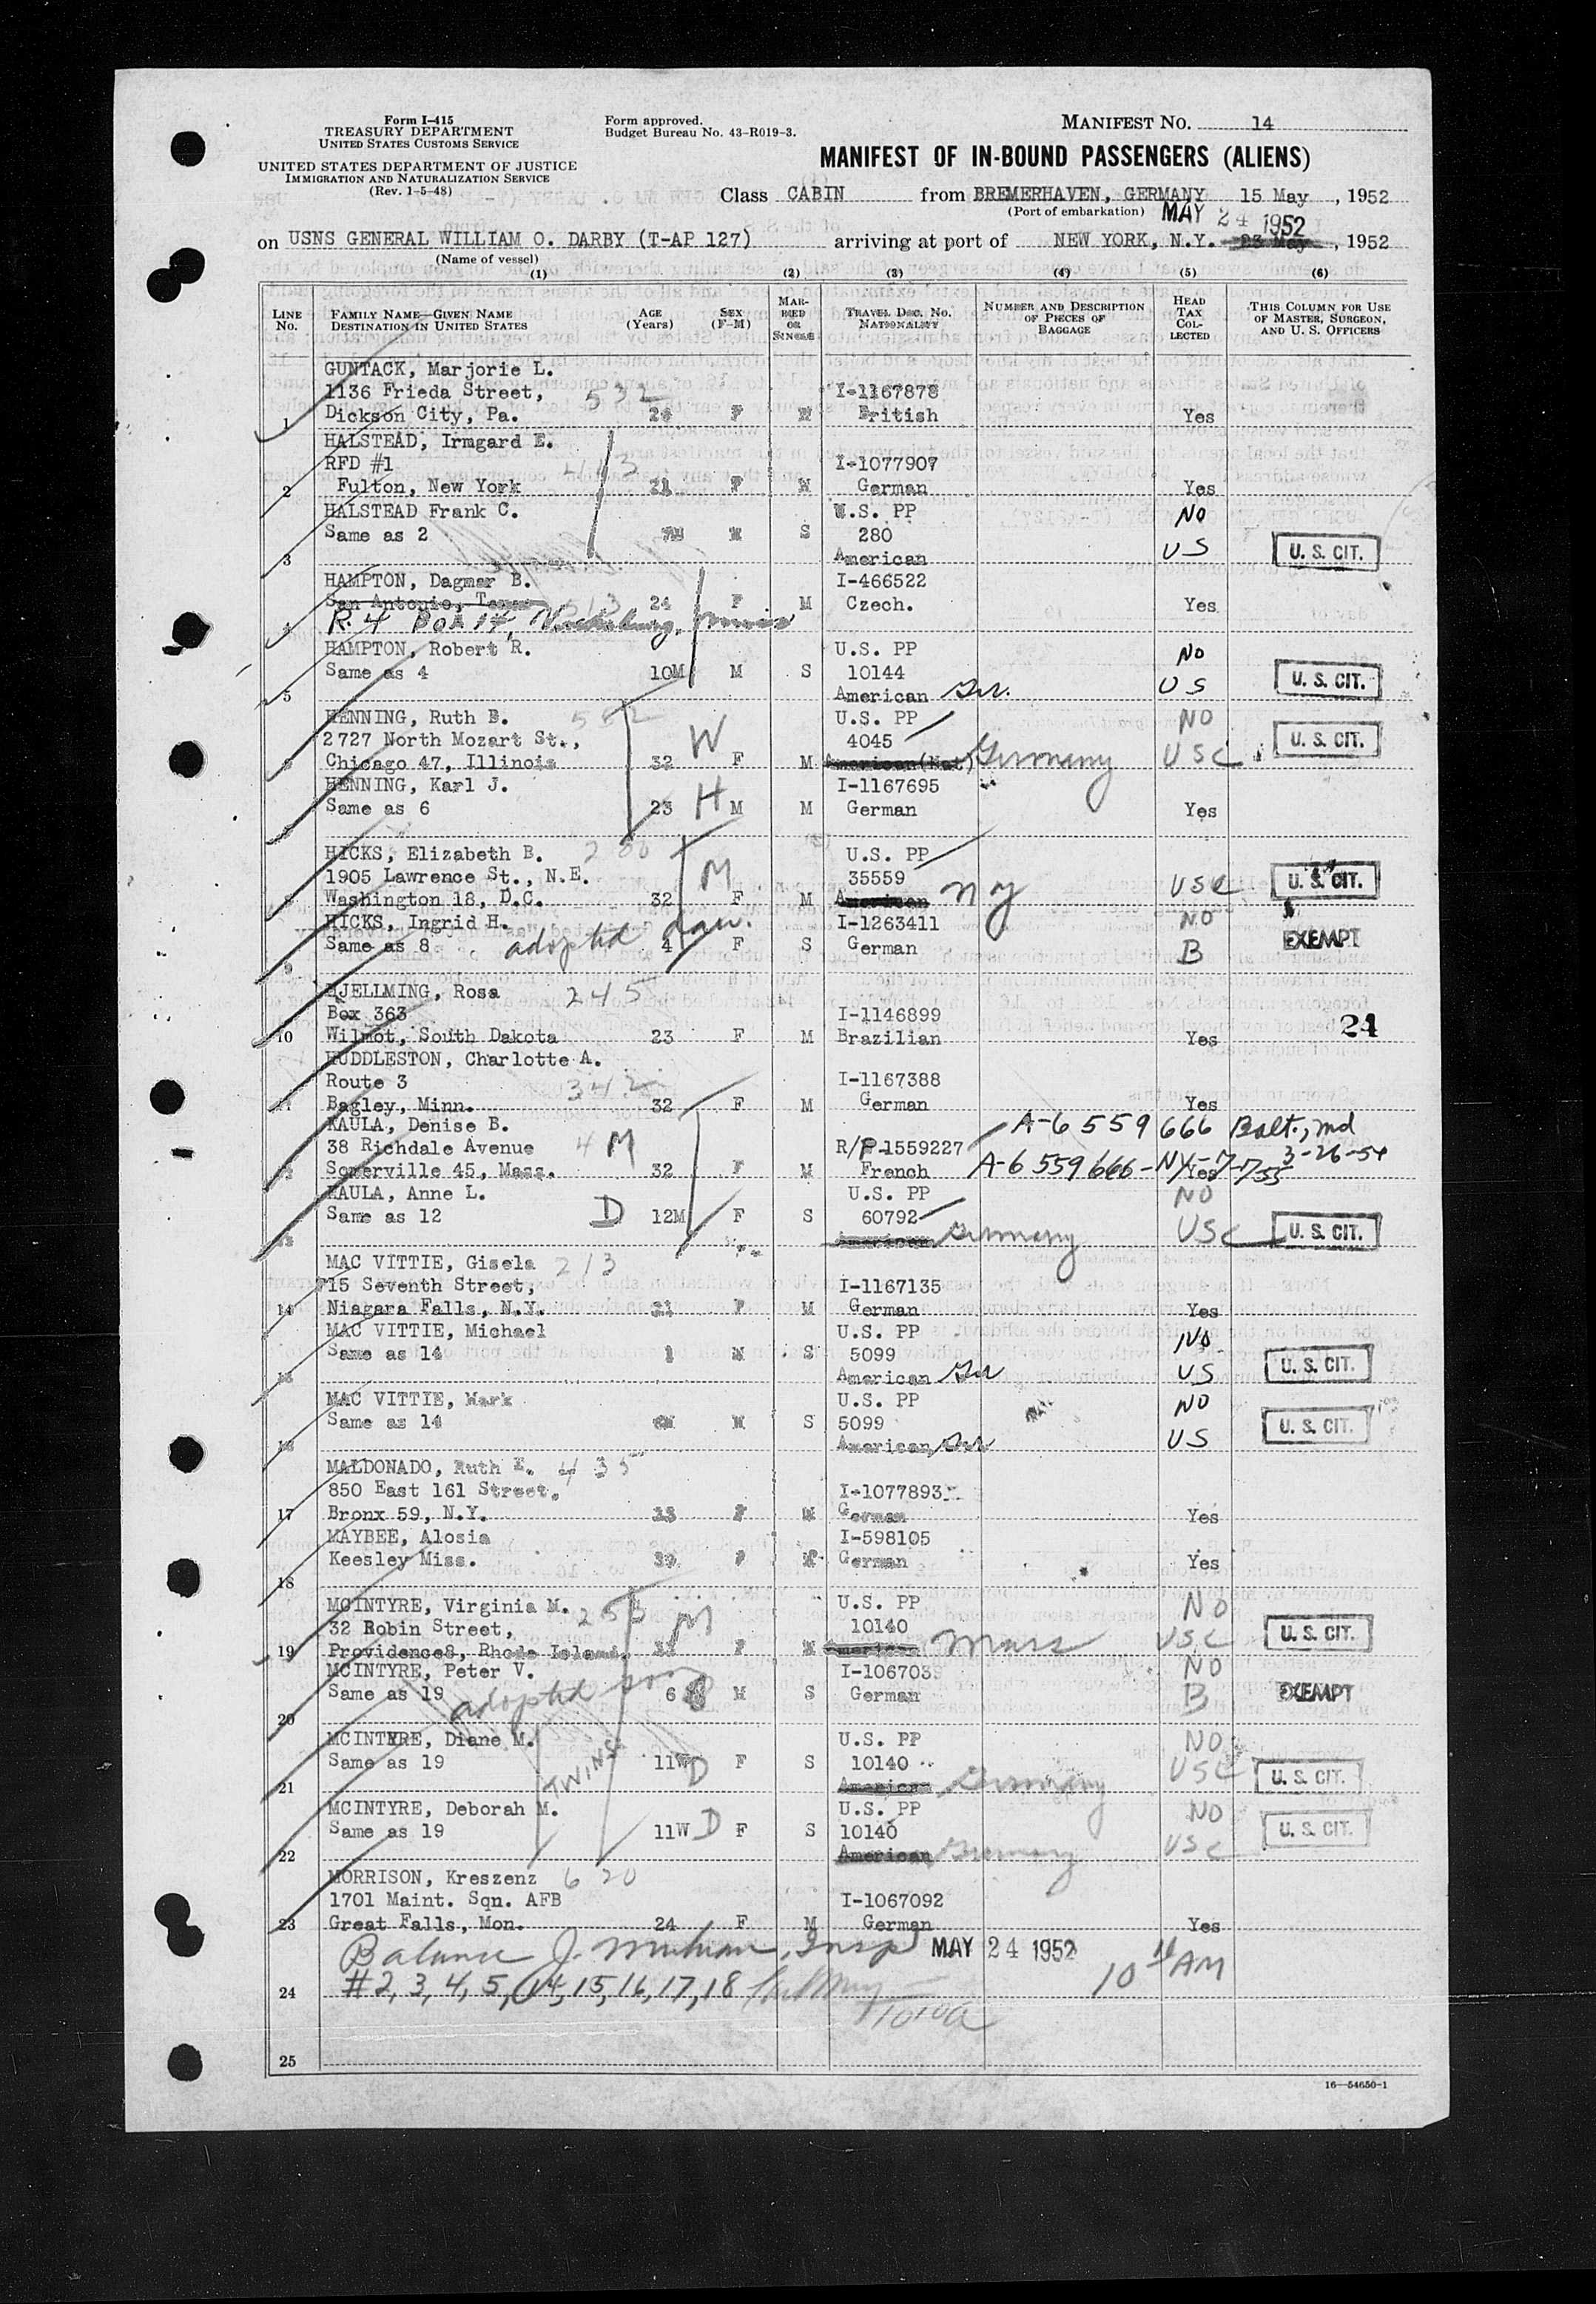 Form I-415
TREASURY DEPARTMENT
UNITED STATES CUSTOMS SERVICE
UNITED STATES DEPARTMENT OF JUSTICE
IMMIGRATION AND NATURALIZATION SERVICE
(Rev. 1-5-48)
Form approved.
Budget Bureau No. 43-R019-3.
MANIFEST NO. 14
MANIFEST OF IN-BOUND PASSENGERS (ALIENS)
Class CABIN from BREMERHAVEN, GERMANY 15 May, 1952
(Port of embarkation) MAY 24 1952
on USNS GENERAL WILLIAM O. DARBY (T-AP 127) arriving at port of NEW YORK, N.Y. 23 May, 1952
(Name of vessel)
(1) (2) (3) (4) (5) (6)
LINE NO.
FAMILY NAME—GIVEN NAME
DESTINATION IN UNITED STATES
AGE (Years)
SEX (F-M)
MARRIED OR SINGLE
TRAVEL DOC. NO.
NATIONALITY
NUMBER AND DESCRIPTION OF PIECES OF BAGGAGE
HEAD TAX COLLECTED
THIS COLUMN FOR USE OF MASTER, SURGEON, AND U. S. OFFICERS
GUNTACK, Marjorie L.
1136 Frieda Street, 532 I-1167878
1 Dickson City, Pa. F M British Yes
HALSTEAD, Irmgard E.
RFD #1 443 I-1077907
2 Fulton, New York 21 F M German Yes
HALSTEAD Frank C. U.S. PP NO
Same as 2 S 280 US
3 American U. S. CIT.
HAMPTON, Dagmar B. I-466522
San Antonio, Texas 513 24 F M Czech. Yes
4 R. 4 Box 14,
HAMPTON, Robert R. U.S. PP NO
Same as 4 10M M S 10144 US U. S. CIT.
5 American Ger.
HENNING, Ruth B. 562 U.S. PP NO
2727 North Mozart St., W 4045 U. S. CIT.
6 Chicago 47, Illinois 32 F M American (Nat) Germany USC
HENNING, Karl J. I-1167695
Same as 6 23 H M M German Yes
7
HICKS, Elizabeth B. 200 U.S. PP
1905 Lawrence St., N.E. M 35559
8 Washington 18, D.C. 32 F M American NY USC U. S. CIT.
HICKS, Ingrid H. I-1263411 NO
Same as 8 adopted dau. 4 F S German B EXEMPT
9
HJELLMING, Rosa 245
Box 363 I-1146899
10 Wilmot, South Dakota 23 F M Brazilian Yes 24
HUDDLESTON, Charlotte A.
Route 3 342 I-1167388
11 Bagley, Minn. 32 F M German Yes
KAULA, Denise B. A-6 559 666 Balt., Md
38 Richdale Avenue 4 M R/P-1559227 3-26-54
12 Somerville 45, Mass. 32 F M French A-6 559 666-NY-7-755 Yes
KAULA, Anne L. U.S. PP NO
Same as 12 D 12M F S 60792 USC U. S. CIT.
13 American Germany
MAC VITTIE, Gisela 213
715 Seventh Street, I-1167135
14 Niagara Falls, N.Y. 21 F M German Yes
MAC VITTIE, Michael U.S. PP NO
Same as 14 1 M S 5099
15 American Ger US U. S. CIT.
MAC VITTIE, Mark U.S. PP NO
Same as 14 M S 5099 US U. S. CIT.
16 American Ger
MALDONADO, Ruth E. 435
850 East 161 Street, I-1077893
17 Bronx 59, N.Y. F M German Yes
MAYBEE, Alosia I-598105
Keesley Miss. F M German Yes
18
MCINTYRE, Virginia M. 253 U.S. PP NO
32 Robin Street, M 10140
19 Providence8, Rhode Island F M American Mass USC U. S. CIT.
MCINTYRE, Peter V. I-1067039 NO
Same as 19 adopted son 6 M S German B EXEMPT
20
MCINTYRE, Diane M. U.S. PP NO
Same as 19 TWINS 11W D F S 10140 USC U. S. CIT.
21 American Germany
MCINTYRE, Deborah M. U.S. PP NO
Same as 19 11W D F S 10140 USC U. S. CIT.
22 American Germany
MORRISON, Kreszenz 620
1701 Maint. Sqn. AFB I-1067092
23 Great Falls, Mon. 24 F M German Yes
Balance J. Insp MAY 24 1952 10 AM
24 #2, 3, 4, 5, 14, 15, 16, 17, 18
25
16—54650-1